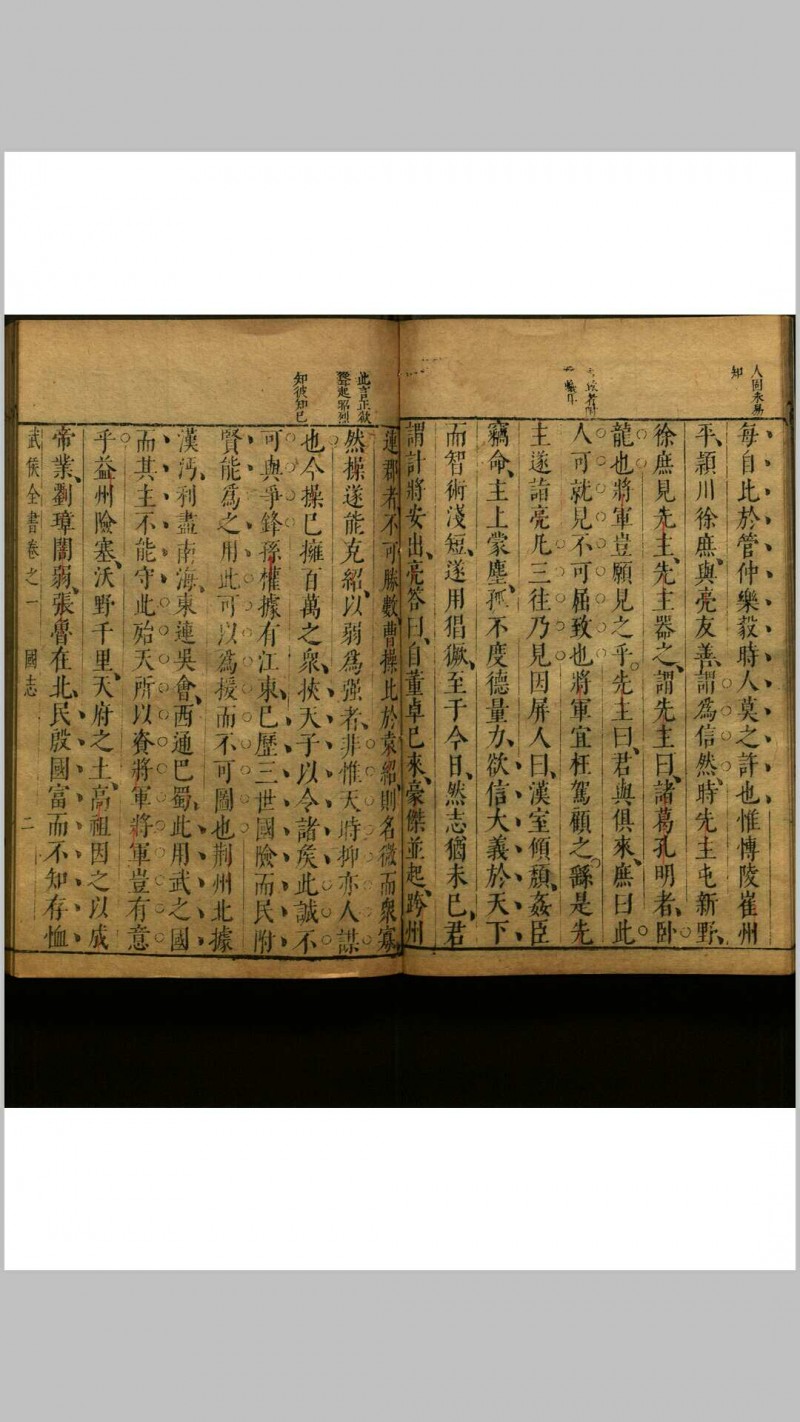 人固未易
知
每自比於管仲樂毅時人莫之許也惟博陵崔州
平、潁川徐庶、與亮友善、謂爲信然、時先主屯新野、
徐庶見先主、先主器之、謂先主曰、諸葛孔明者、卧
龍也將軍豈願見之乎。先主曰、君與俱來、庶曰此
人可就見不可屈致也將軍宜枉駕顧之。繇是先
主遂詣亮凡三往乃見因屏人曰、漢室傾頹、姦臣
竊命、主上蒙塵、孤不度德量力、欲信大義於天下、
而智術淺短、遂用猖獗、至于今日、然志猶未已、君
謂計將安出、亮答曰、自董卓已來、豪傑並起、跨州
此言正欲
知彼知已
連郡者不可勝數曹操比於袁紹、則名微而衆寡、
然操遂能克紹、以弱爲强者、非惟天時抑亦人謀
也今操已擁百萬之衆、挾天子以令諸矦此誠不
可與爭鋒孫權據有江東、已歷三世國險而民附
賢能爲之用此可以爲援而不可圖也荆州北據
漢沔、利盡南海、東連吳會、西通巴蜀、此用武之國
而其主不能守此殆天所以資將軍將軍豈有意
乎益州險塞、沃野千里、天府之土、高祖因之以成
帝業、劉璋闇弱、張魯在北、民殷國富而不知存恤
武侯全書卷之一 國志 二